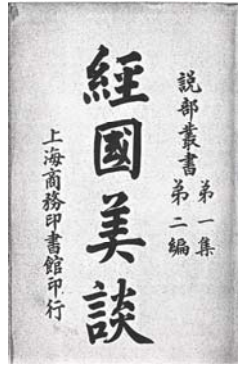 說部叢書 第一集
第二編
經國美談
上海商務印書館印行